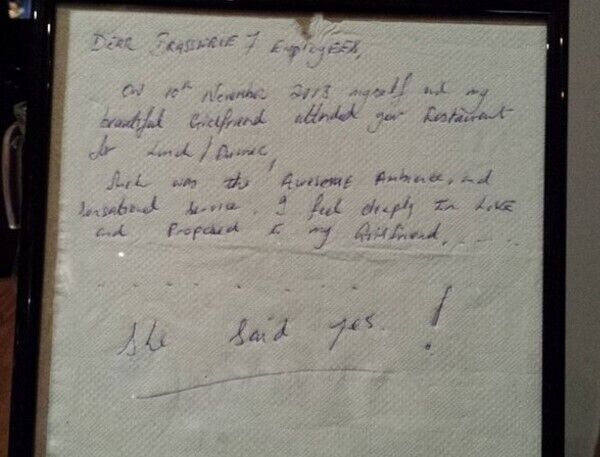 DEAR BRASSERIE 7 EmployEES,
ON 10th November 2013 myself and my
beautiful Girlfriend attended your Restaurant
for Lunch / Dinner,
Such was the AWESOME Ambience, and
Sensational Service. I fell deeply in LOVE
and Proposed to my Girlfriend. . . . .
. . . . . . . .
She Said yes. !